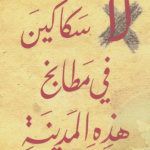 لا سكاكين
في مطابخ
هذه المدينة